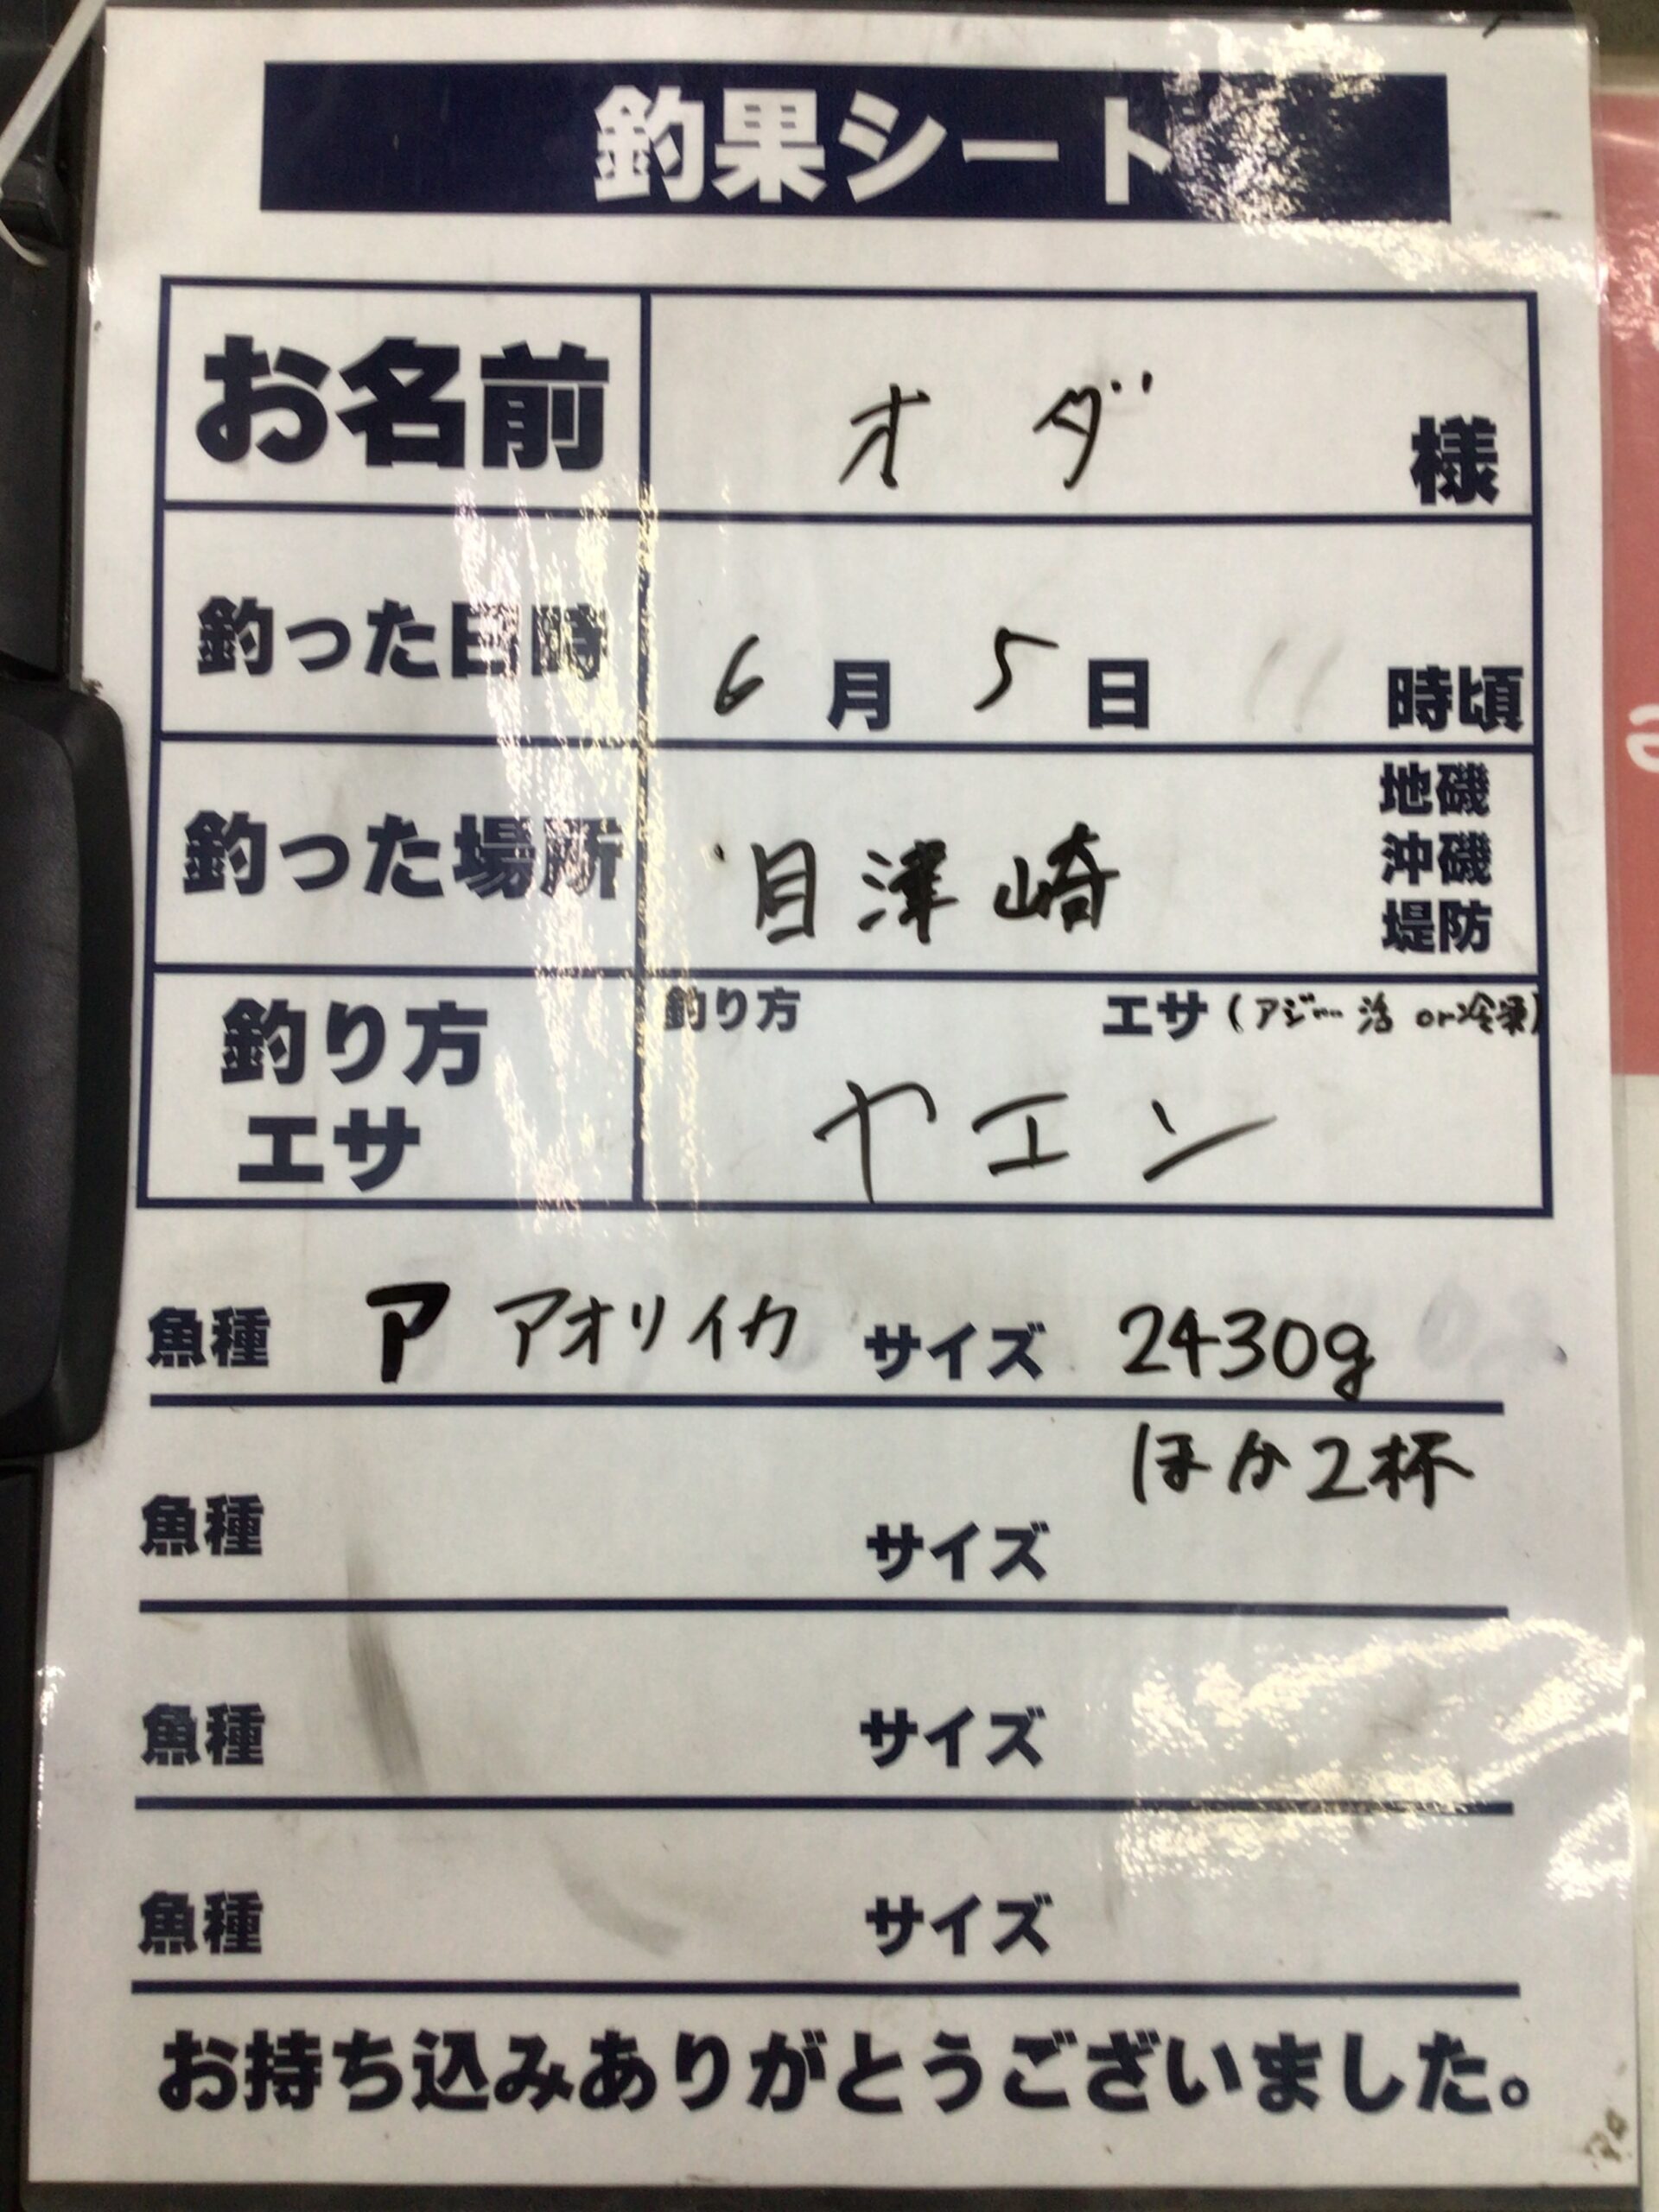 釣果シート
お名前 オダ 様
釣った日時 6月 5日 11時頃
釣った場所 目津崎 地磯
沖磯
堤防
釣り方 エサ(アジ… 活 or 冷凍)
釣り方
エサ
ヤエン
魚種 ア アオリイカ サイズ 2430g
ほか2杯
魚種 サイズ
魚種 サイズ
魚種 サイズ
お持ち込みありがとうございました。